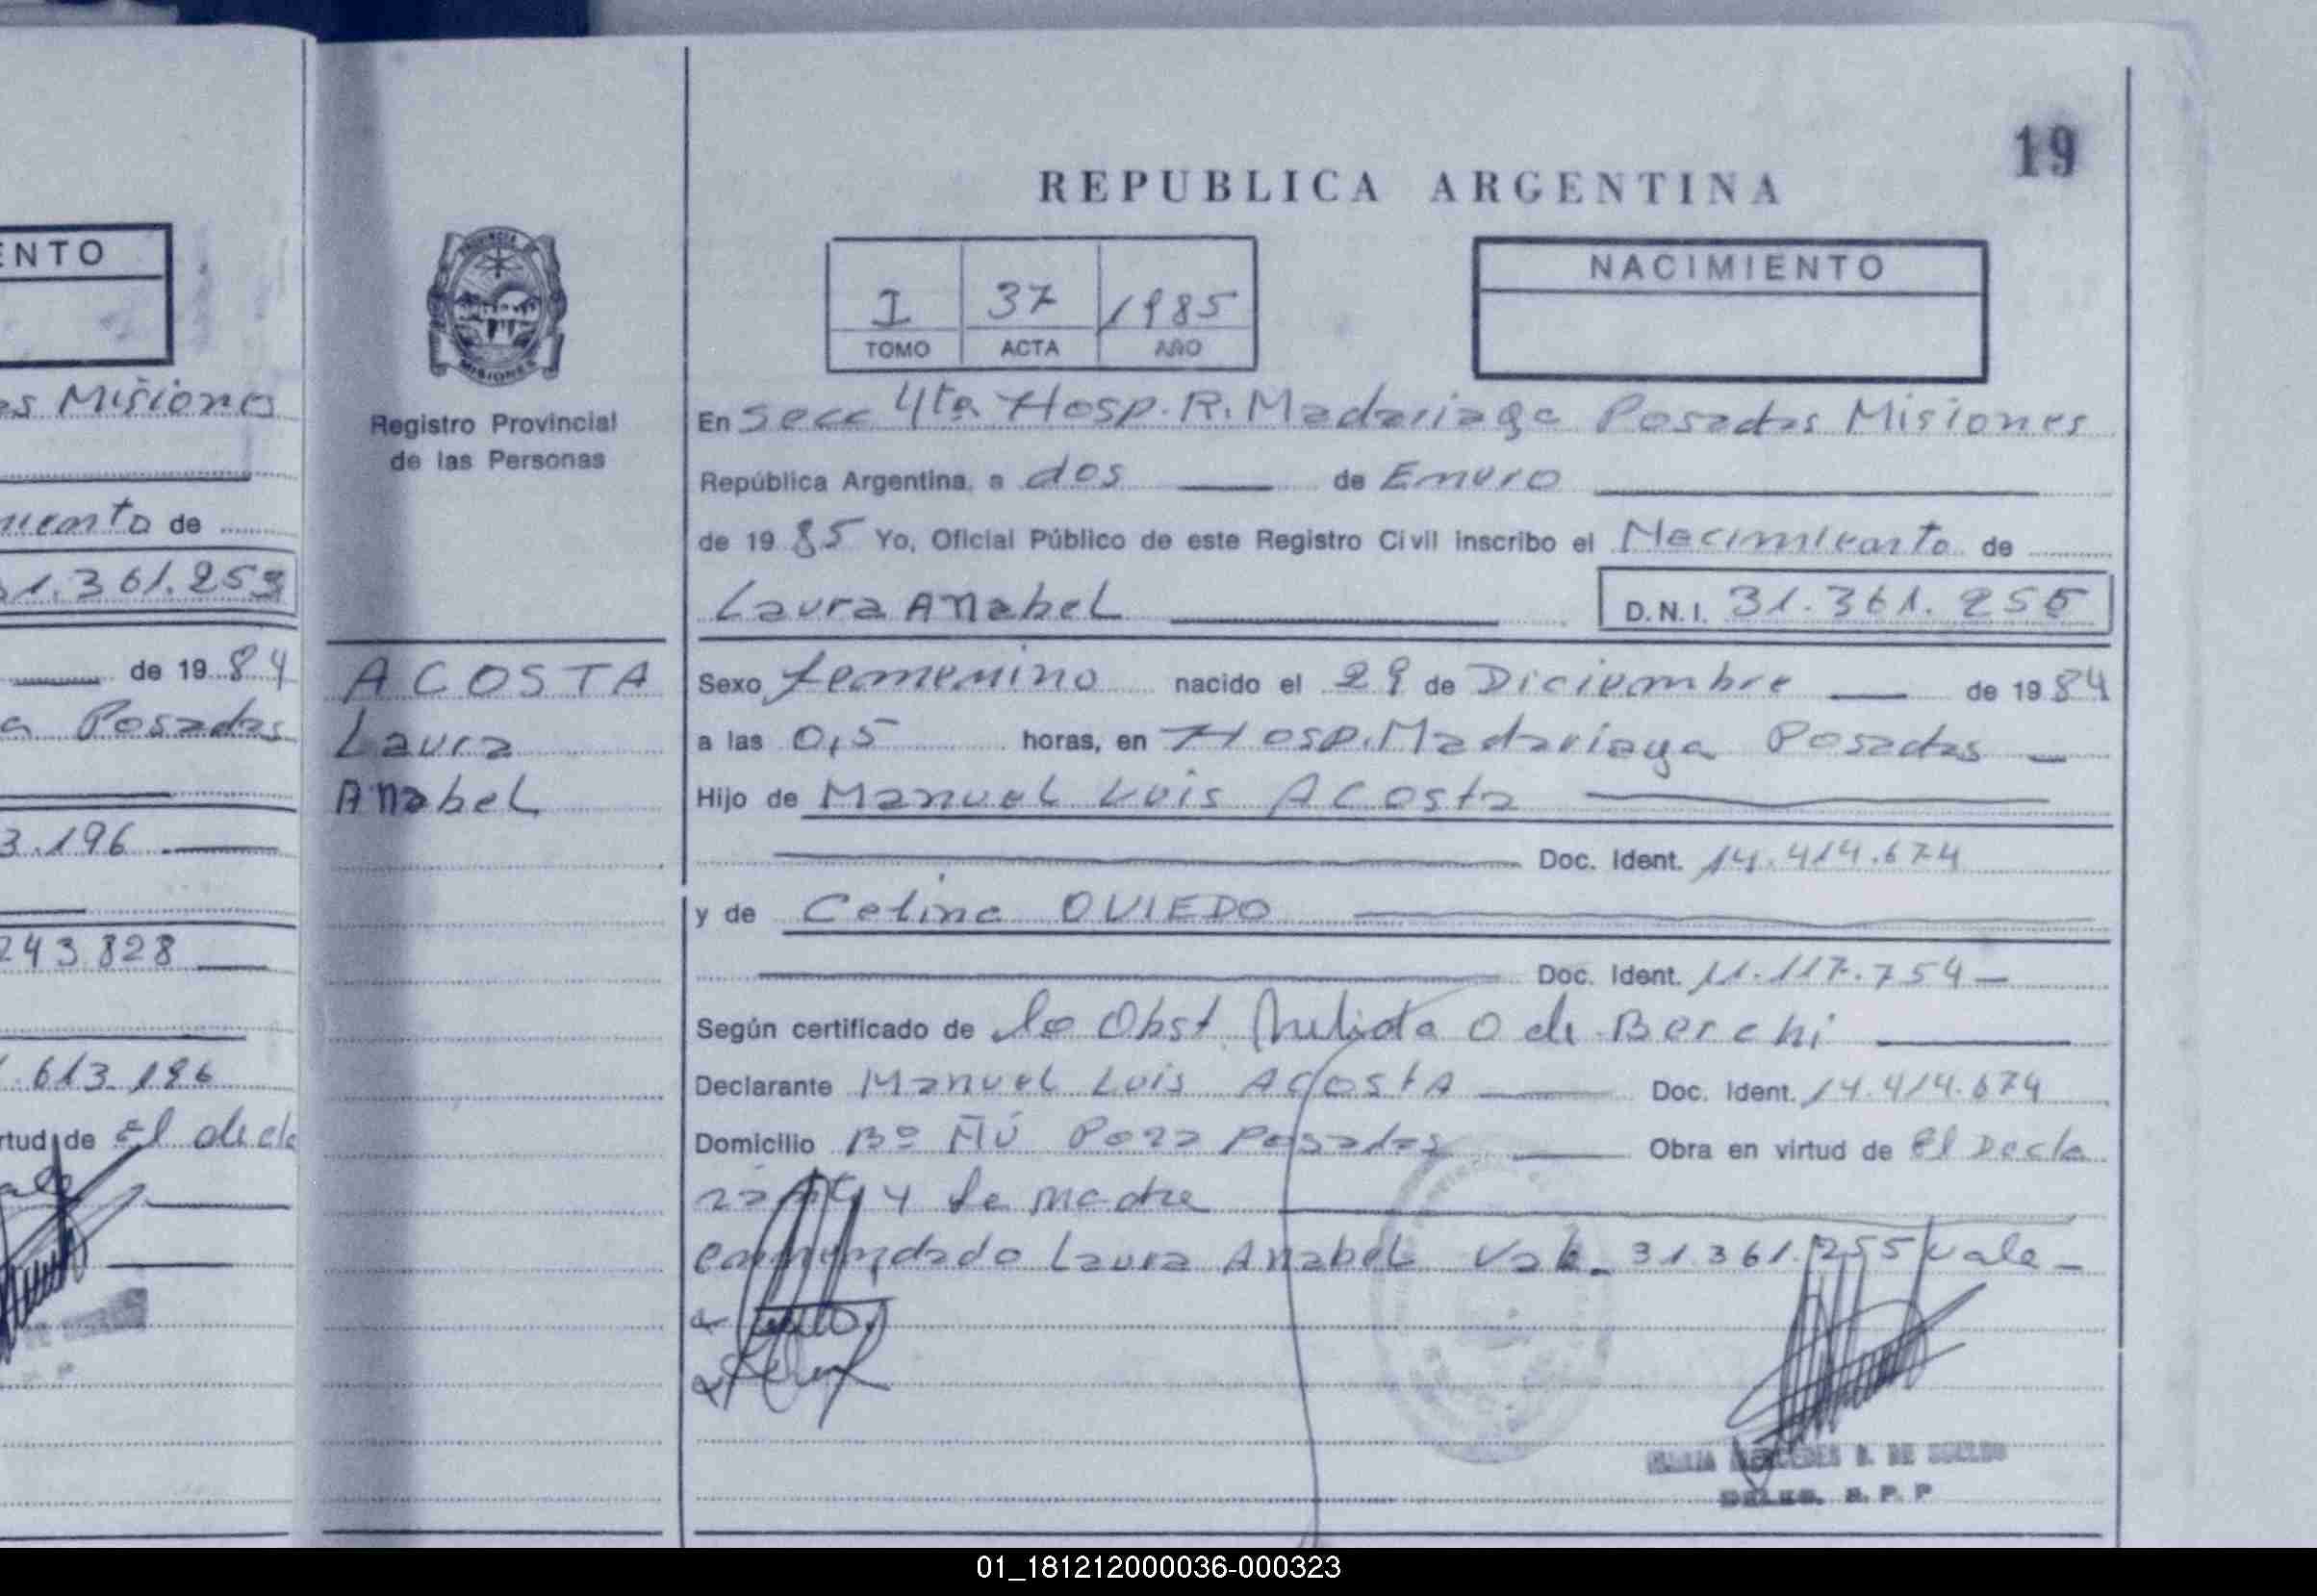 ENTO
es Misiones
de
1.361.253
de 19 84
a Posadas
3.196
243.828
.613.196
rtud de El decla
19
REPUBLICA ARGENTINA
I 37 1985
TOMO ACTA AÑO
NACIMIENTO
MISIONES
Registro Provincial
de las Personas
ACOSTA
Laura
Anabel
En Secc 4ta Hosp. R. Madariaga Posadas Misiones
República Argentina, a dos de Enero
de 19 85 Yo, Oficial Público de este Registro Civil inscribo el Nacimiento de
Laura Anabel D.N.I. 31.361.255
Sexo femenino nacido el 29 de Diciembre de 19 84
a las 0,5 horas, en Hosp. Madariaga Posadas
Hijo de Manuel Luis Acosta
Doc. Ident. 14.414.674
y de Celina OVIEDO
Doc. Ident. 11.117.754
Según certificado de la Obst. O de Berchi
Declarante Manuel Luis Acosta Doc. Ident. 14.414.674
Domicilio Bº Ñú Pora Posadas Obra en virtud de El Decla
y la madre
enmendado Laura Anabel Vale 31.361.255 vale
MERCEDES
01_181212000036-000323